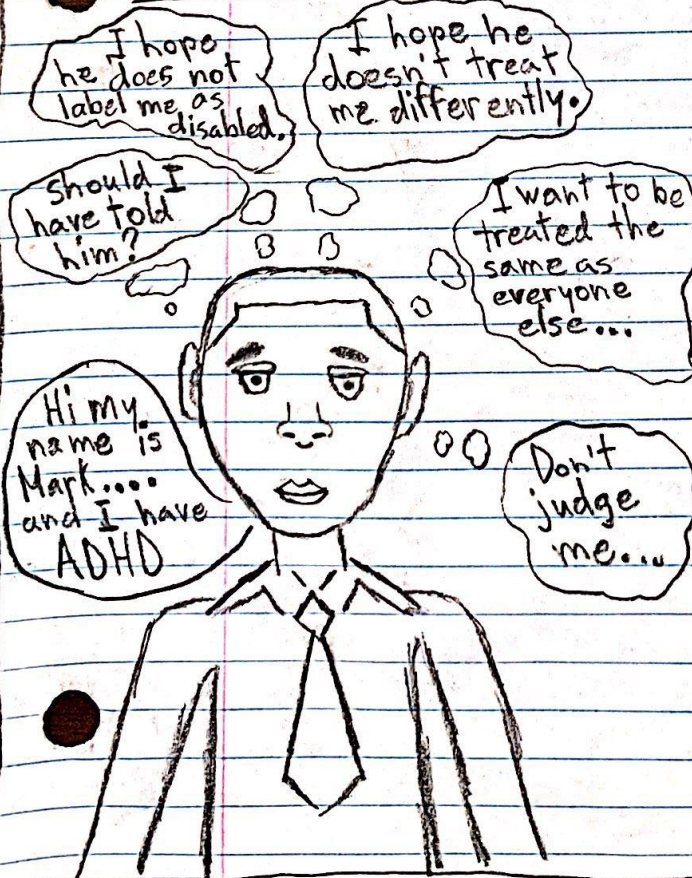 I hope
he does not
label me as
disabled.
I hope he
doesn't treat
me differently.
should I
have told
him?
I want to be
treated the
same as
everyone
else...
Hi my
name is
Mark....
and I have
ADHD
Don't
judge
me...